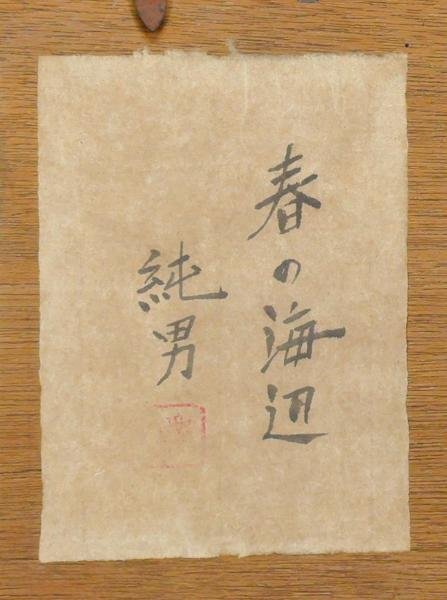 春の海辺
純男